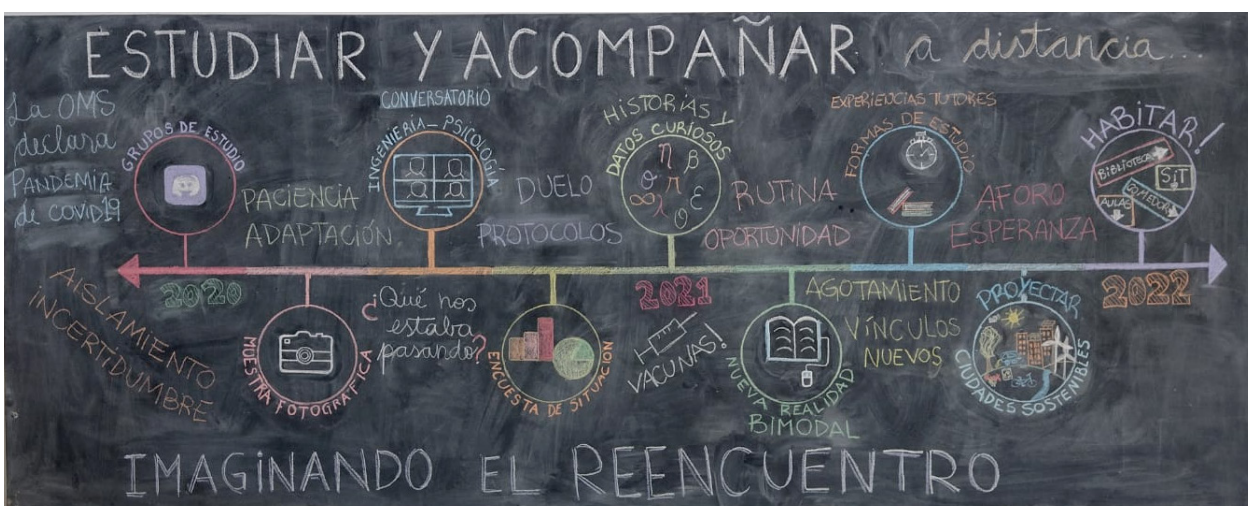 ESTUDIAR Y ACOMPAÑAR a distancia...
La OMS
declara
PANDEMIA
de COVID19
GRUPOS DE ESTUDIO
PACIENCIA
ADAPTACIÓN
CONVERSATORIO
INGENIERÍA-PSICOLOGÍA
DUELO
PROTOCOLOS
HISTORIAS Y
DATOS CURIOSOS
η β
σ π ε
∞ λ
RUTINA
OPORTUNIDAD
EXPERIENCIAS TUTORES
FORMAS DE ESTUDIO
AFORO
ESPERANZA
HABITAR!
BIBLIOTECA
SiT
COMEDOR
AULAS
2020
2021
2022
AISLAMIENTO
INCERTIDUMBRE
MUESTRA FOTOGRÁFICA
¿Qué nos
estaba
pasando?
ENCUESTA DE SITUACIÓN
VACUNAS!
NUEVA REALIDAD
BIMODAL
AGOTAMIENTO
VÍNCULOS
NUEVOS
PROYECTAR
CIUDADES SOSTENIBLES
IMAGINANDO EL REENCUENTRO